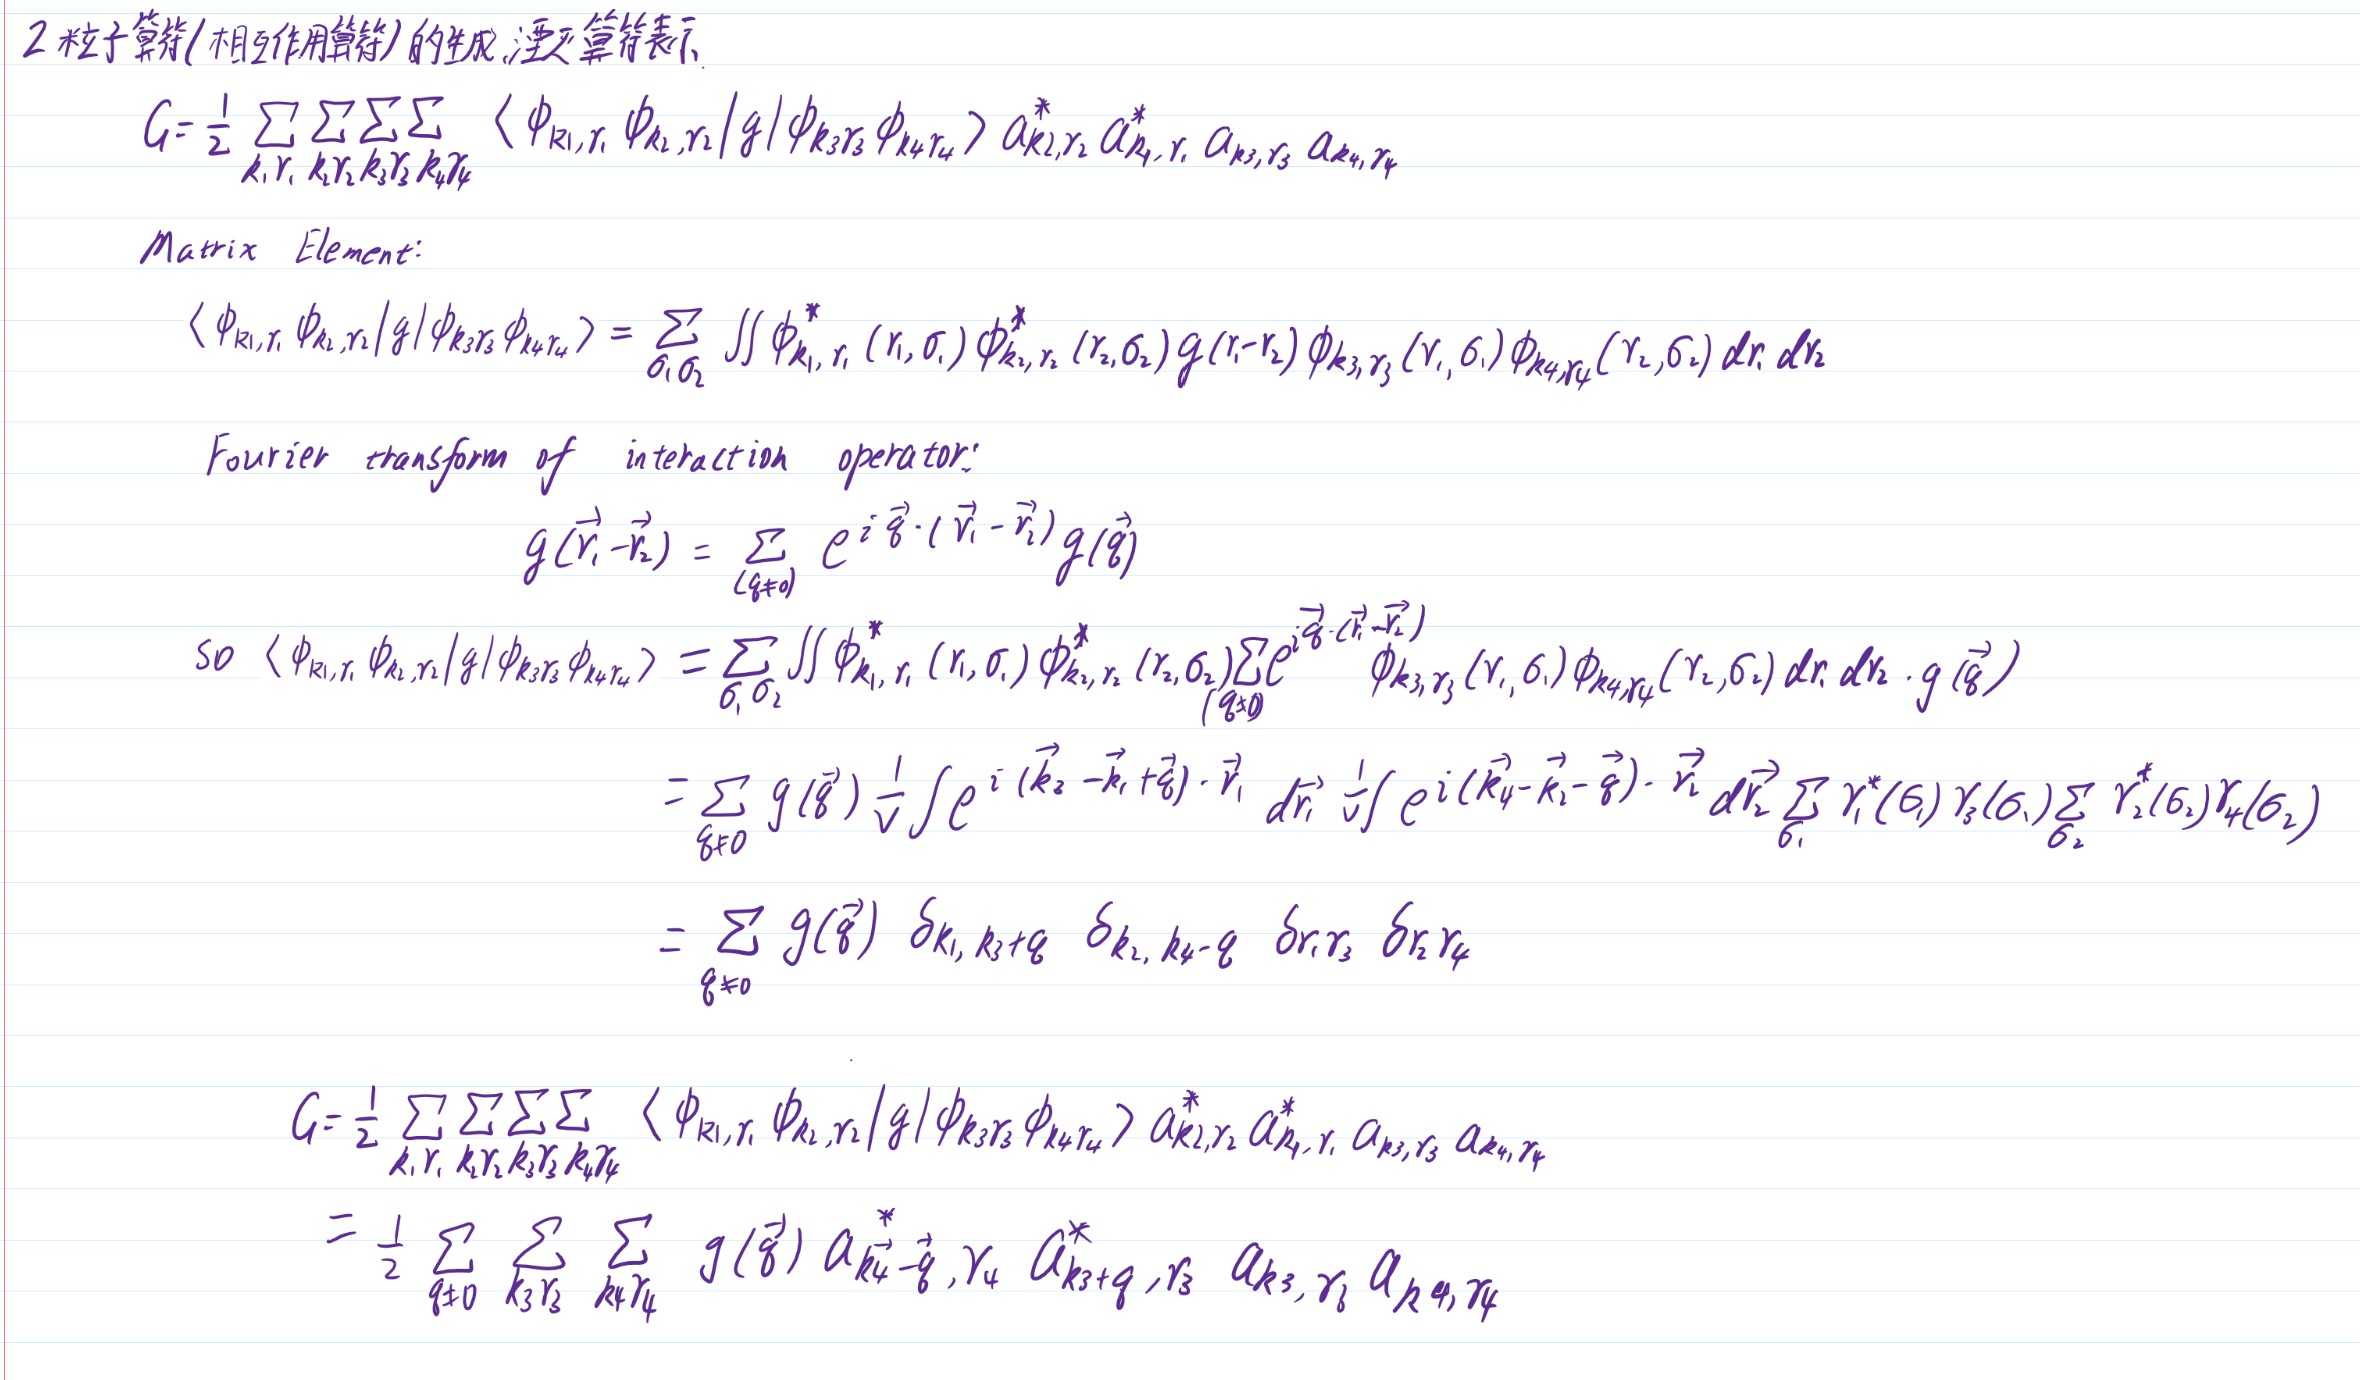 2粒子算符(相互作用算符)的生成、湮灭算符表示
G = 1/2 ∑_{k₁γ₁} ∑_{k₂γ₂} ∑_{k₃γ₃} ∑_{k₄γ₄} ⟨ϕ_{k₁,γ₁} ϕ_{k₂,γ₂}|g|ϕ_{k₃γ₃} ϕ_{k₄γ₄}⟩ a*_{k₂,γ₂} a*_{k₁,γ₁} a_{k₃,γ₃} a_{k₄,γ₄}
Matrix Element:
⟨ϕ_{k₁,γ₁} ϕ_{k₂,γ₂}|g|ϕ_{k₃γ₃} ϕ_{k₄γ₄}⟩ = ∑_{σ₁σ₂} ∬ ϕ*_{k₁,γ₁}(r₁,σ₁) ϕ*_{k₂,γ₂}(r₂,σ₂) g(r₁-r₂) ϕ_{k₃,γ₃}(r₁,σ₁) ϕ_{k₄,γ₄}(r₂,σ₂) dr₁ dr₂
Fourier transform of interaction operator:
g(r⃗₁-r⃗₂) = ∑_{(q≠0)} e^{i q⃗·(r⃗₁-r⃗₂)} g(q⃗)
so ⟨ϕ_{k₁,γ₁} ϕ_{k₂,γ₂}|g|ϕ_{k₃γ₃} ϕ_{k₄γ₄}⟩ = ∑_{σ₁σ₂} ∬ ϕ*_{k₁,γ₁}(r₁,σ₁) ϕ*_{k₂,γ₂}(r₂,σ₂) ∑_{(q≠0)} e^{i q⃗·(r⃗₁-r⃗₂)} ϕ_{k₃,γ₃}(r₁,σ₁) ϕ_{k₄,γ₄}(r₂,σ₂) dr₁ dr₂ · g(q⃗)
= ∑_{q≠0} g(q⃗) 1/V ∫ e^{i(k⃗₃-k⃗₁+q⃗)·r⃗₁} dr⃗₁ 1/V ∫ e^{i(k⃗₄-k⃗₂-q⃗)·r⃗₂} dr⃗₂ ∑_{σ₁} γ₁*(σ₁) γ₃(σ₁) ∑_{σ₂} γ₂*(σ₂) γ₄(σ₂)
= ∑_{q≠0} g(q⃗) δ_{k₁,k₃+q} δ_{k₂,k₄-q} δ_{γ₁γ₃} δ_{γ₂γ₄}
G = 1/2 ∑_{k₁γ₁} ∑_{k₂γ₂} ∑_{k₃γ₃} ∑_{k₄γ₄} ⟨ϕ_{k₁,γ₁} ϕ_{k₂,γ₂}|g|ϕ_{k₃γ₃} ϕ_{k₄γ₄}⟩ a*_{k₂,γ₂} a*_{k₁,γ₁} a_{k₃,γ₃} a_{k₄,γ₄}
= 1/2 ∑_{q≠0} ∑_{k₃γ₃} ∑_{k₄γ₄} g(q⃗) a*_{k⃗₄-q⃗,γ₄} a*_{k₃+q,γ₃} a_{k₃,γ₃} a_{k₄,γ₄}